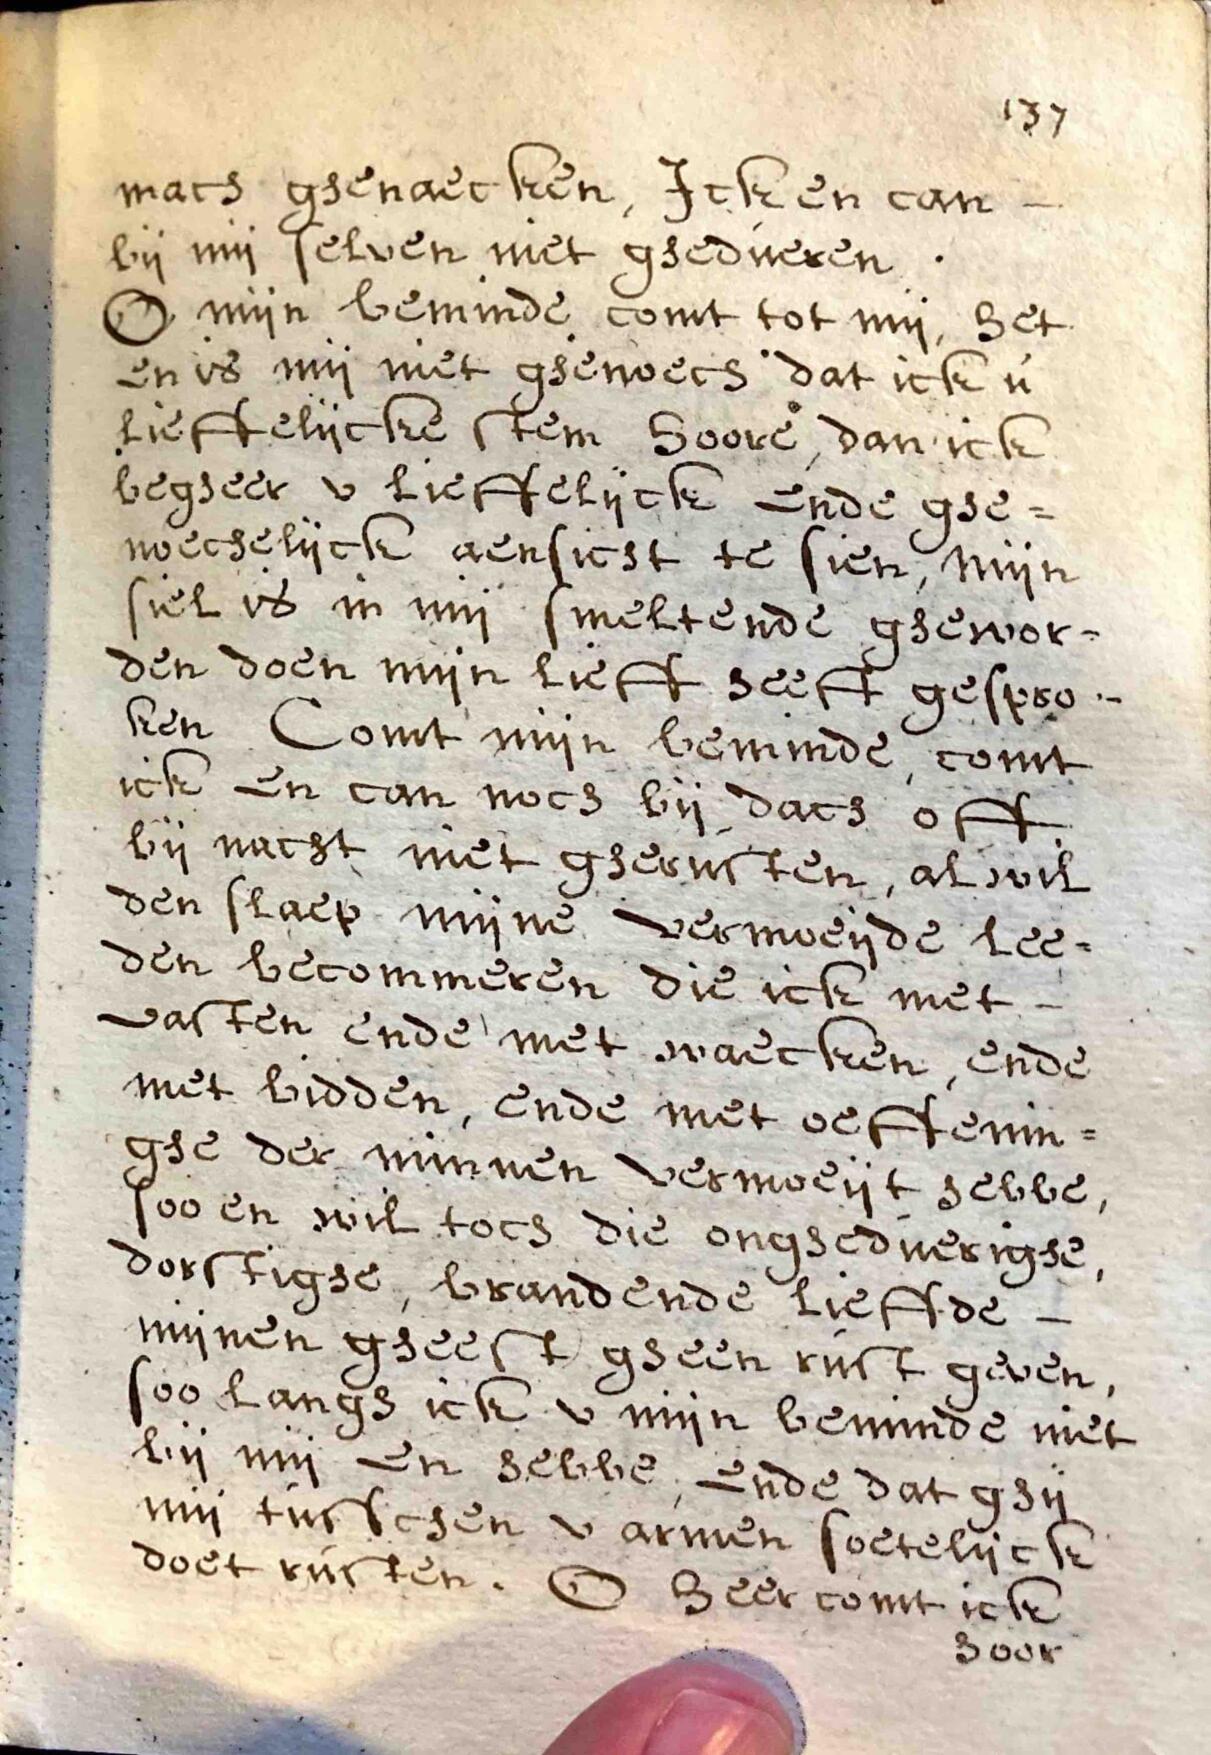 137
mach ghenaecken, Ick en can –
bij mij selven niet ghedueren .
O mijn beminde comt tot mij, het
en is mij niet ghenoech dat ick ú
lieffelijcke stem hoore, dan ick
begheer v lieffelijck ende ghe=
noechelijck aensicht te sien, Mijn
siel is in mij smeltende ghewor=
den doen mijn lieff heeft gespro-
ken Comt mijn beminde, comt
ick en can noch bij dach off
bij nacht niet gherusten, al wil
den slaep mijne vermoeijde lee=
den becommeren die ick met –
vasten ende met waecken, ende
met bidden, ende met oeffenin=
ghe der minnen vermoeijt hebbe,
soo en wil toch die onghedúerighe,
dorstighe, brandende lieffde –
mijnen gheest gheen rúst geven,
soo langh ick v mijn beminde niet
bij mij en hebbe, ende dat ghij
mij tusschen v armen soetelijck
doet rusten. O Heer comt ick
hoor